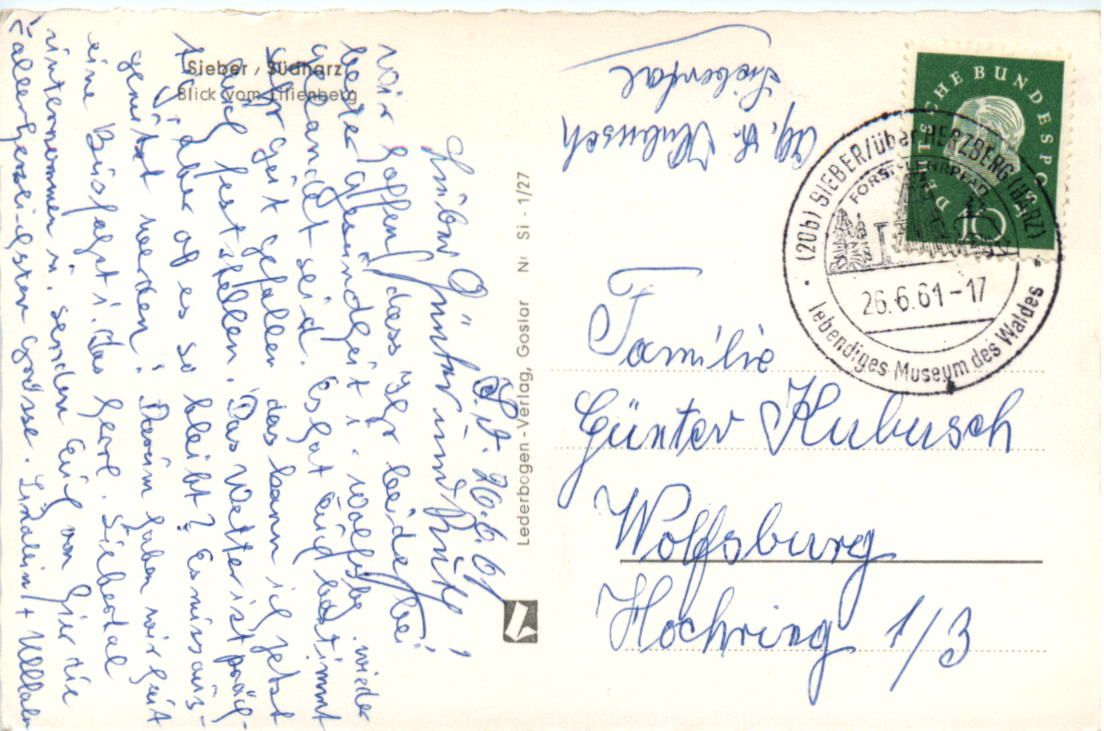 Sieber, Südharz
Blick vom Lilienberg
St. 26.6.61
Lieber Günter und Ruth,
wir hoffen dass Ihr beide bei
bester Gesundheit i. Wolfsbg. wieder
gelandet seid. Es hat Euch bestimmt
sehr gut gefallen das kann ich jetzt
auch feststellen. Das Wetter ist präch-
tig, aber ob es so bleibt? Es muss aus-
genützt werden. Darum haben wir heut
eine Busfahrt i. das herrl. Siebertal
unternommen u. senden Euch von hier die
allerherzlichsten Grüsse.
Lederbogen-Verlag, Goslar Nr Si - 1/27
Abs. Kubusch
Siebertal
DEUTSCHE BUNDESPOST
10
(20b) SIEBER/über HERZBERG (HARZ)
FORSTLEHRPFAD
26.6.61-17
lebendiges Museum des Waldes
Familie
Günter Kubusch
Wolfsburg
Hochring 1/3